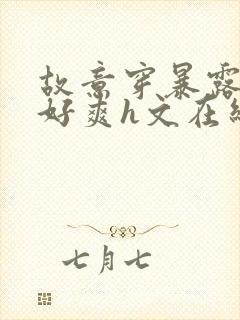 故意穿暴露
好爽h文在线
七月七